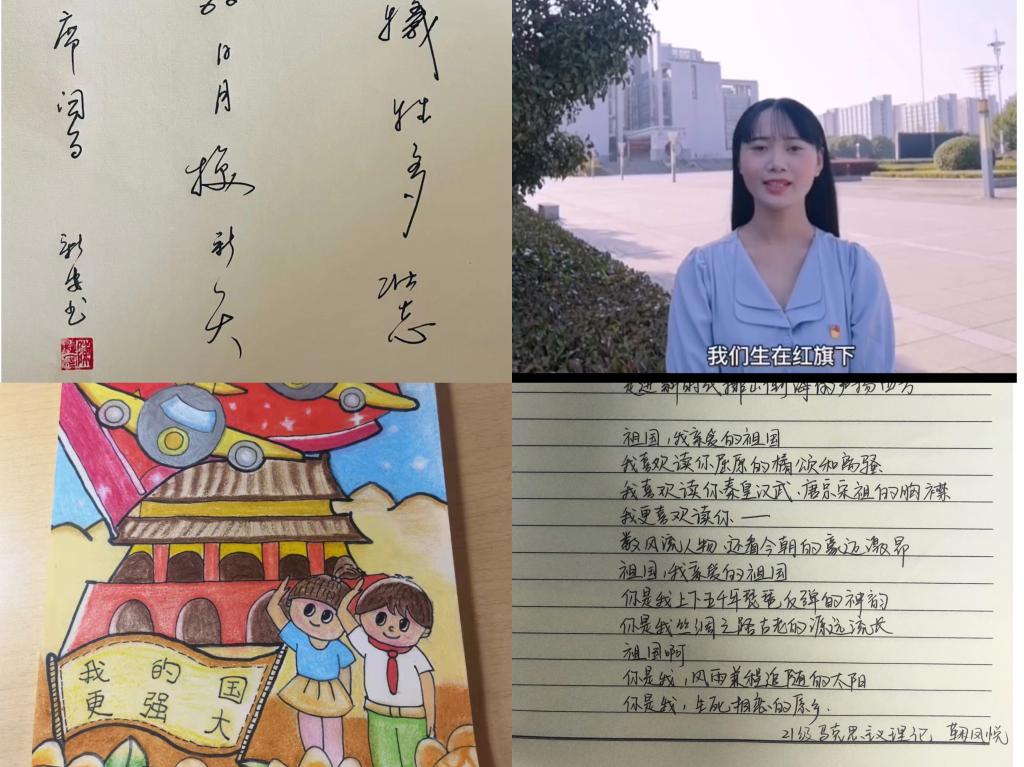 犧牲多壮志
日月换新天
席
我们生在红旗下
我的国
更强大
祖国，我亲爱的祖国
我喜欢读你屈原的橘颂和离骚
我喜欢读你秦皇汉武、唐宗宋祖的胸襟
我更喜欢读你——
数风流人物，还看今朝的豪迈激昂
祖国，我亲爱的祖国
你是我上下五千年琵琶反弹的神韵
你是我丝绸之路古老的源远流长
祖国啊
你是我，风雨兼程追随的太阳
你是我，生死相恋的原乡.
21级马克思主义理论 鞠凤悦